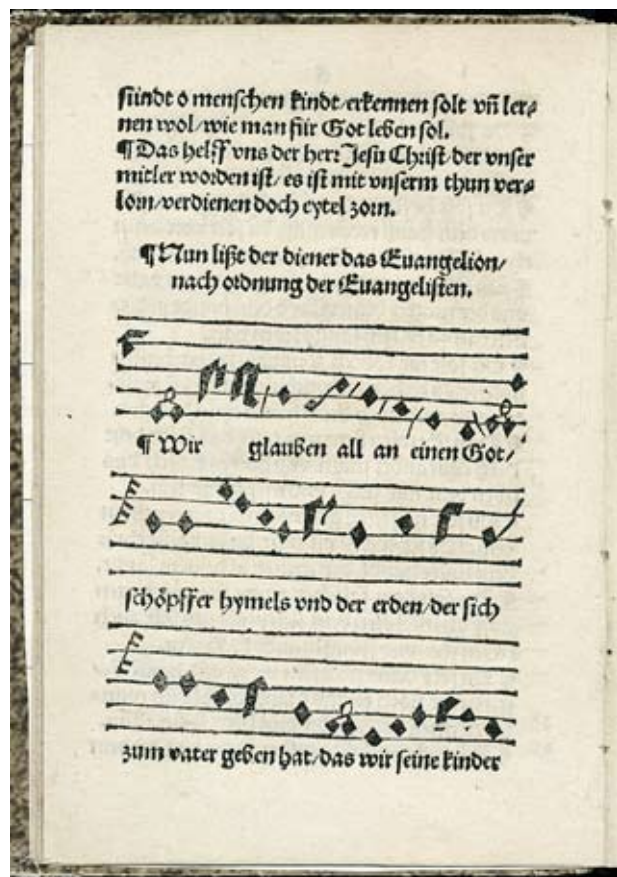 sündt o menschen kindt/erkennen solt vñ ler⸗
nen wol/wie man für Got leben sol.
¶Das helff vns der herr Jesu Christ/der vnser
mitler worden ist/es ist mit vnserm thun ver⸗
lorn/verdienen doch eytel zorn.
¶Nun lißt der diener das Euangelion/
nach ordnung der Euangelisten.
¶ Wir glauben all an einen Got/
schöpffer hymels vnd der erden/der sich
zum vater geben hat/das wir seine kinder